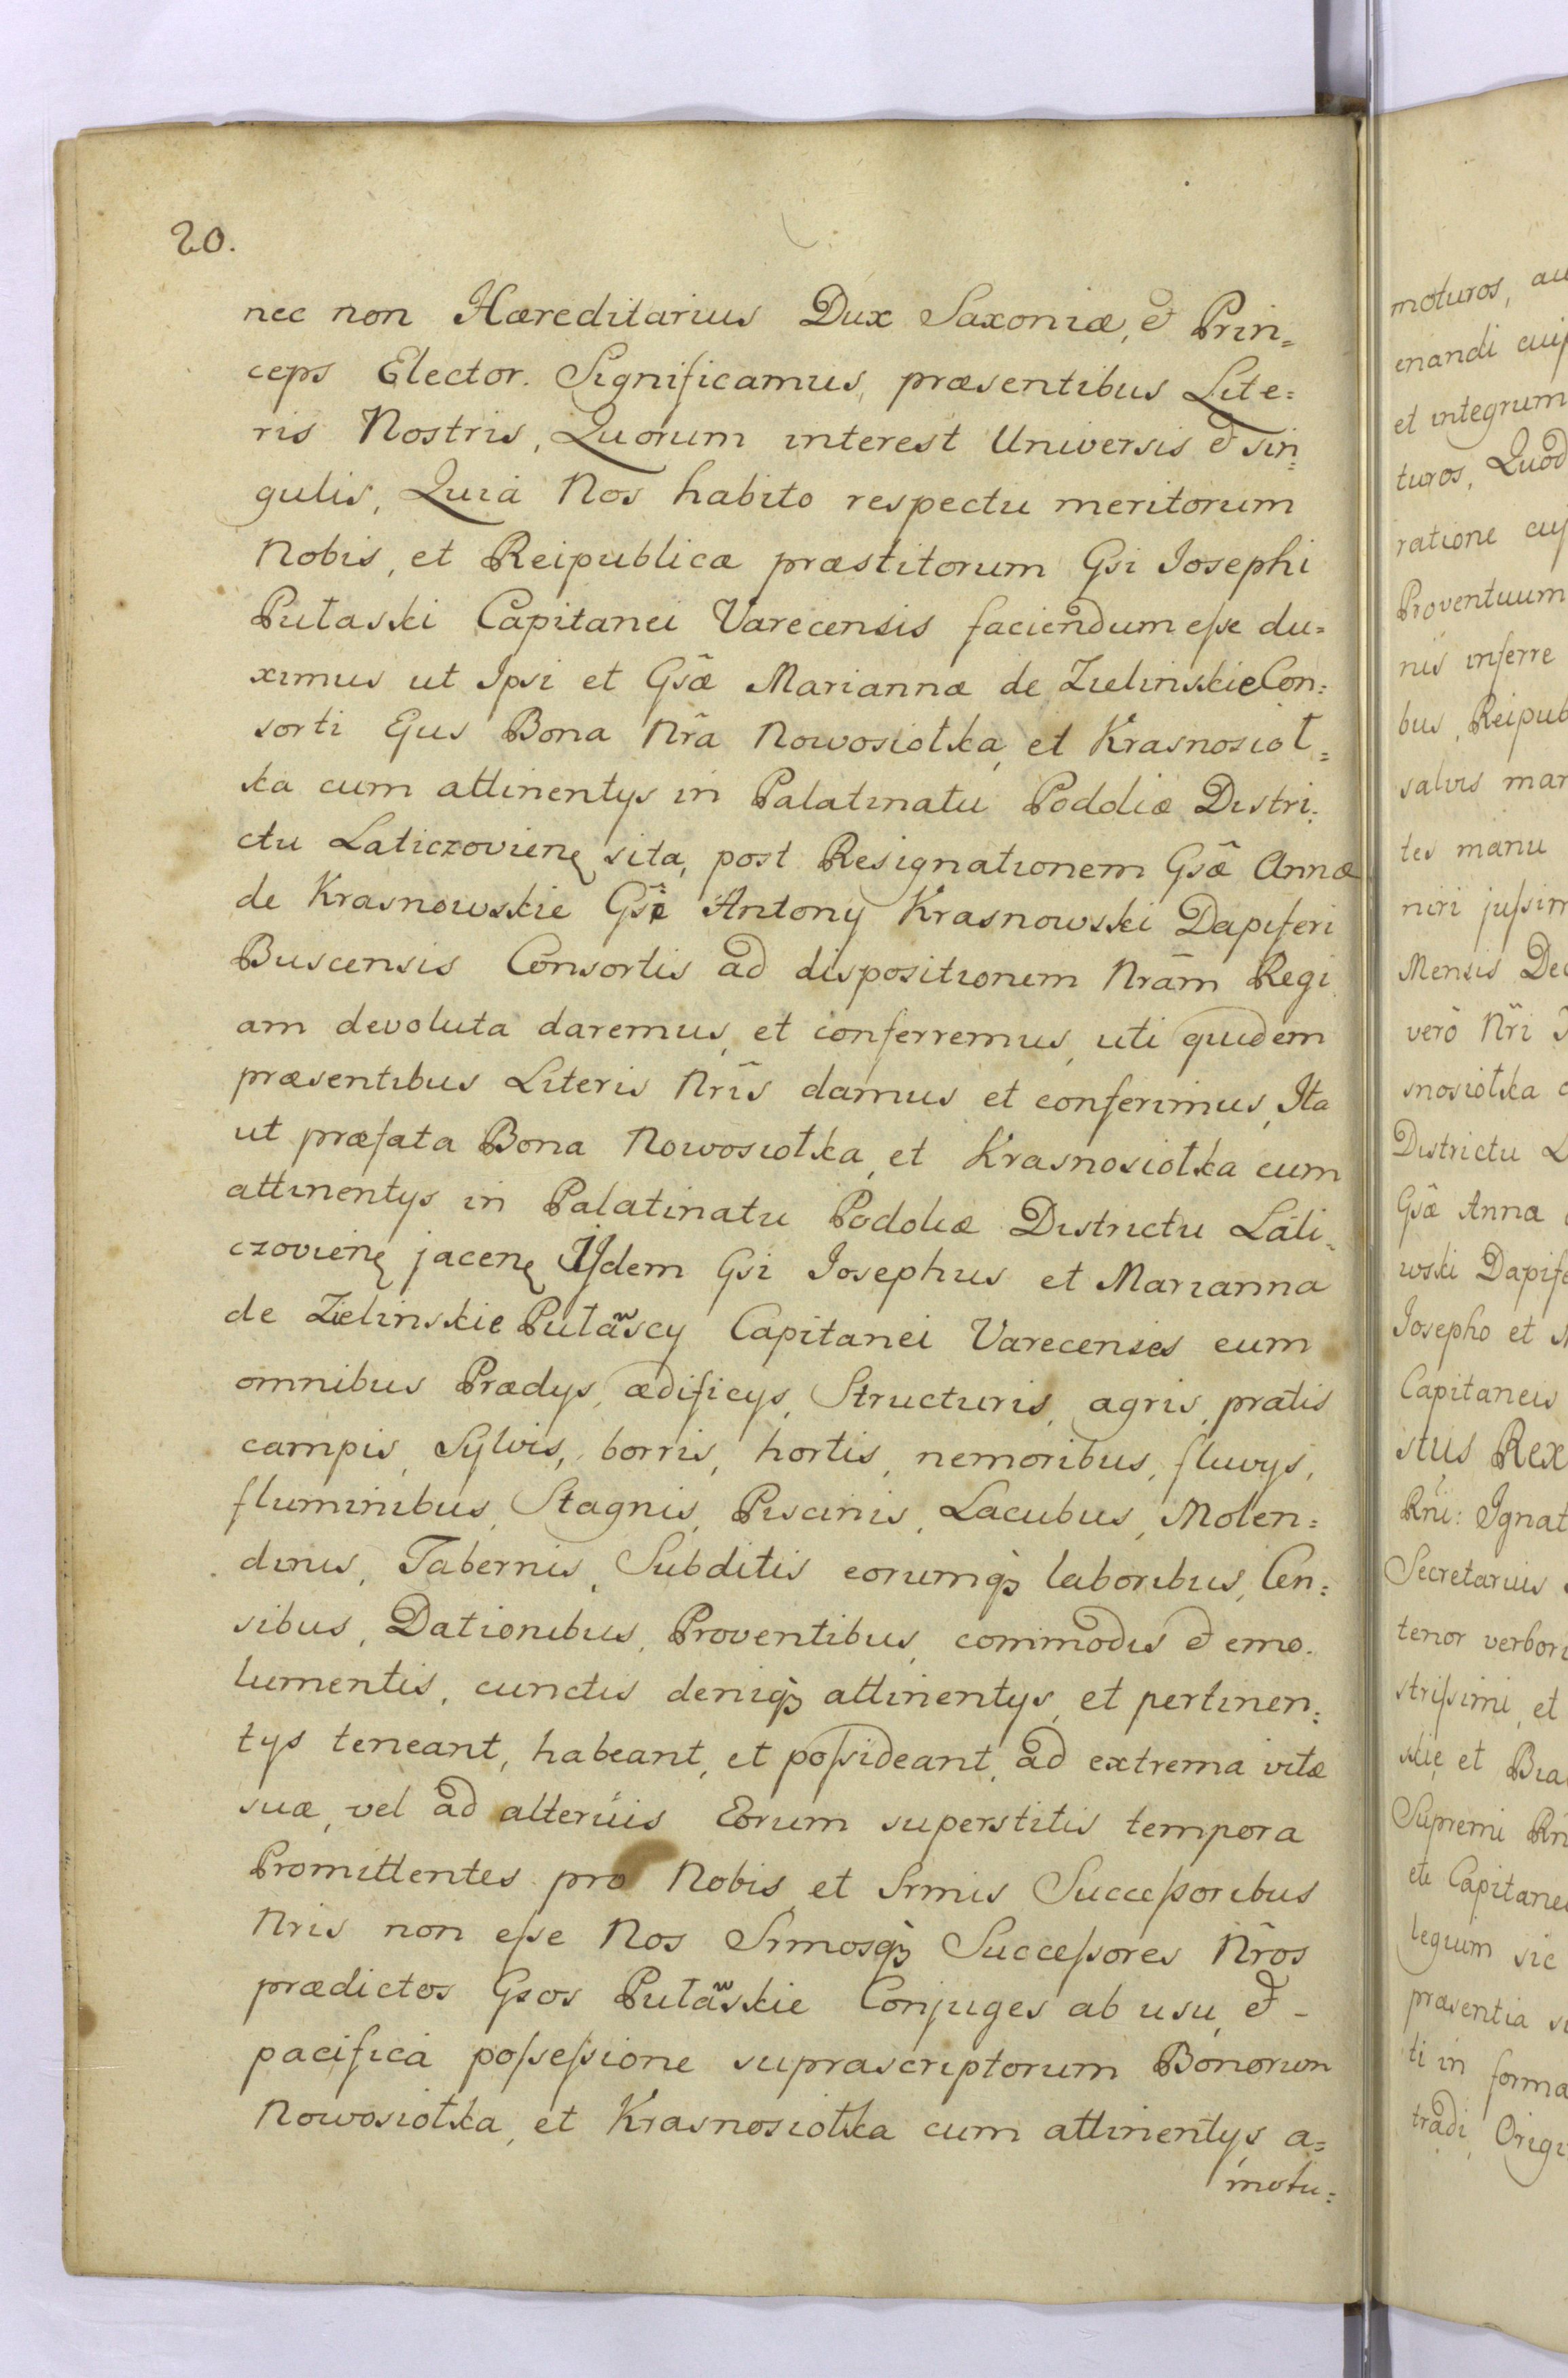 20.
nec non Hæreditarius Dux Saxoniæ, et Prin=
ceps Elector. Significamus, præsentibus Lite=
ris Nostris, Quorum interest Universis et sin=
gulis, Quia Nos habito respectu meritorum
Nobis, et Reipublicæ præstitorum Gsi Josephi
Pułaski Capitanei Varecensis faciendum eſse du=
ximus ut Ipsi et Gsæ Mariannæ de Zielinskie Con=
sorti Ejus Bona Nrã Nowosiołka, et Krasnosioł=
ka cum attinentÿs in Palatinatu Podoliæ Distri=
ctu Laticzovienę sita, post Resignationem Gsæ Annæ
de Krasnowskie Gsi Antonÿ Krasnowski Dapiferi
Buscensis Consortis ad dispositionem Nrãm Regi
am devoluta daremus, et conferremus, uti quidem
præsentibus Literis Nrĩs damus et conferimus, Ita
ut præfata Bona Nowosiołka, et Krasnosiołka cum
attinentÿs in Palatinatu Podoliæ Districtu Lati=
czovienę jacenę Ijdem Gsi Josephus et Marianna
de Zielinskie Pułascy Capitanei Varecenses cum
omnibus Prædÿs, ædificÿs, Structuris, agris, pratis
campis, Sylvis, borris, hortis, nemoribus, fluvÿs,
fluminibus, Stagnis, Piscinis, Lacubus, Molen=
dinis, Tabernis, Subditis eorumqꝫ laboribus, Cen=
sibus, Dationibus, Proventibus, commodis et emo=
lumentis, cunctis deniqꝫ attinentÿs, et pertinen=
tÿs teneant, habeant, et poſsideant, ad extrema vitæ
suæ, vel ad alterius Eorum superstitis tempora
Promittentes pro Nobis, et Srmis Succeſsoribus
Nris non eſse Nos Srmosqꝫ Succeſsores Nr̃os
prædictos Gsos Pułaskie Conjuges ab usu, et -
pacifica poſseſsione suprascriptorum Bonorum
Nowosiołka, et Krasnosiołka cum attinentÿs a=
motu=
moturos, au
enandi cuip
et integrum
turos, Quod
ratione cuj
Proventuum
nis inferre
bus, Reipub
salvis man
tes manu
niri juſsim
Mensis Dec
verò Nr̃i
snosiołka c
Districtu L
Gsæ Anna
wski Dapife
Josepho et M
Capitaneis
stus Rex
Rni: Ignat
Secretarius
tenor verbor
striſsimi, et
skie et Bia
Supremi Rn
etc Capitane
legium sic
præsentia su
ti in forma
tradi, Origi